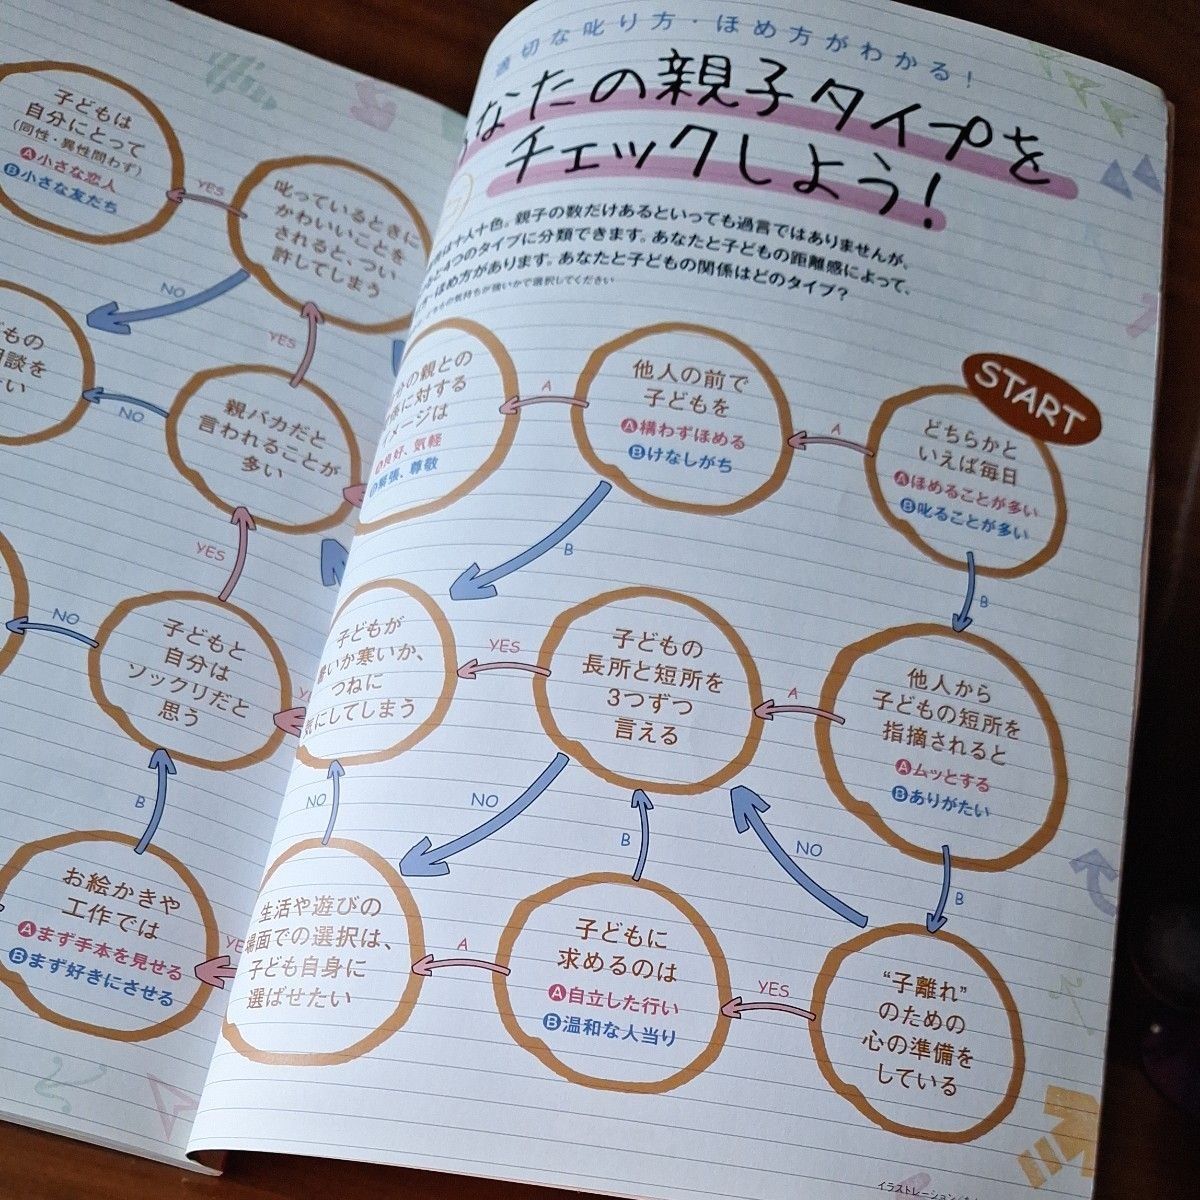 適切な叱り方・ほめ方がわかる！
なたの親子タイプを
チェックしよう！
は十人十色。親子の数だけあるといっても過言ではありませんが、
と4つのタイプに分類できます。あなたと子どもの距離感によって、
ほめ方があります。あなたと子どもの関係はどのタイプ？
どちらの気持ちが強いかで選択してください
START
どちらかと
いえば毎日
Aほめることが多い
B叱ることが多い
A
B
他人の前で
子どもを
A構わずほめる
Bけなしがち
A
B
の親との
に対する
メージは
良好、気軽
B緊張、尊敬
他人から
子どもの短所を
指摘されると
Aムッとする
Bありがたい
A
B
子どもの
長所と短所を
3つずつ
言える
YES
NO
子どもが
いか寒いか、
つねに
気にしてしまう
"子離れ"
のための
心の準備を
している
YES
NO
子どもに
求めるのは
A自立した行い
B温和な人当り
A
B
生活や遊びの
場面での選択は、
子ども自身に
選ばせたい
NO
子どもは
自分にとって
(同性・異性問わず)
A小さな恋人
B小さな友だち
YES
叱っているときに
かわいいことを
されると、つい
許してしまう
NO
YES
もの
談を
い
NO
親バカだと
言われることが
多い
YES
子どもと
自分は
ソックリだと
思う
NO
B
お絵かきや
工作では
Aまず手本を見せる
Bまず好きにさせる
イラストレーション